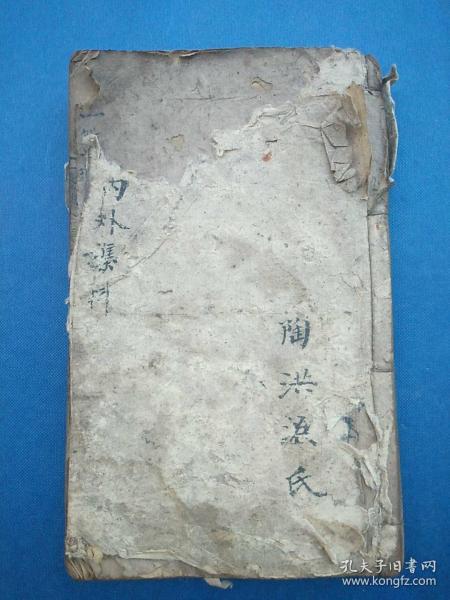 陶洪源氏
内外集科
孔夫子旧书网
www.kongfz.com